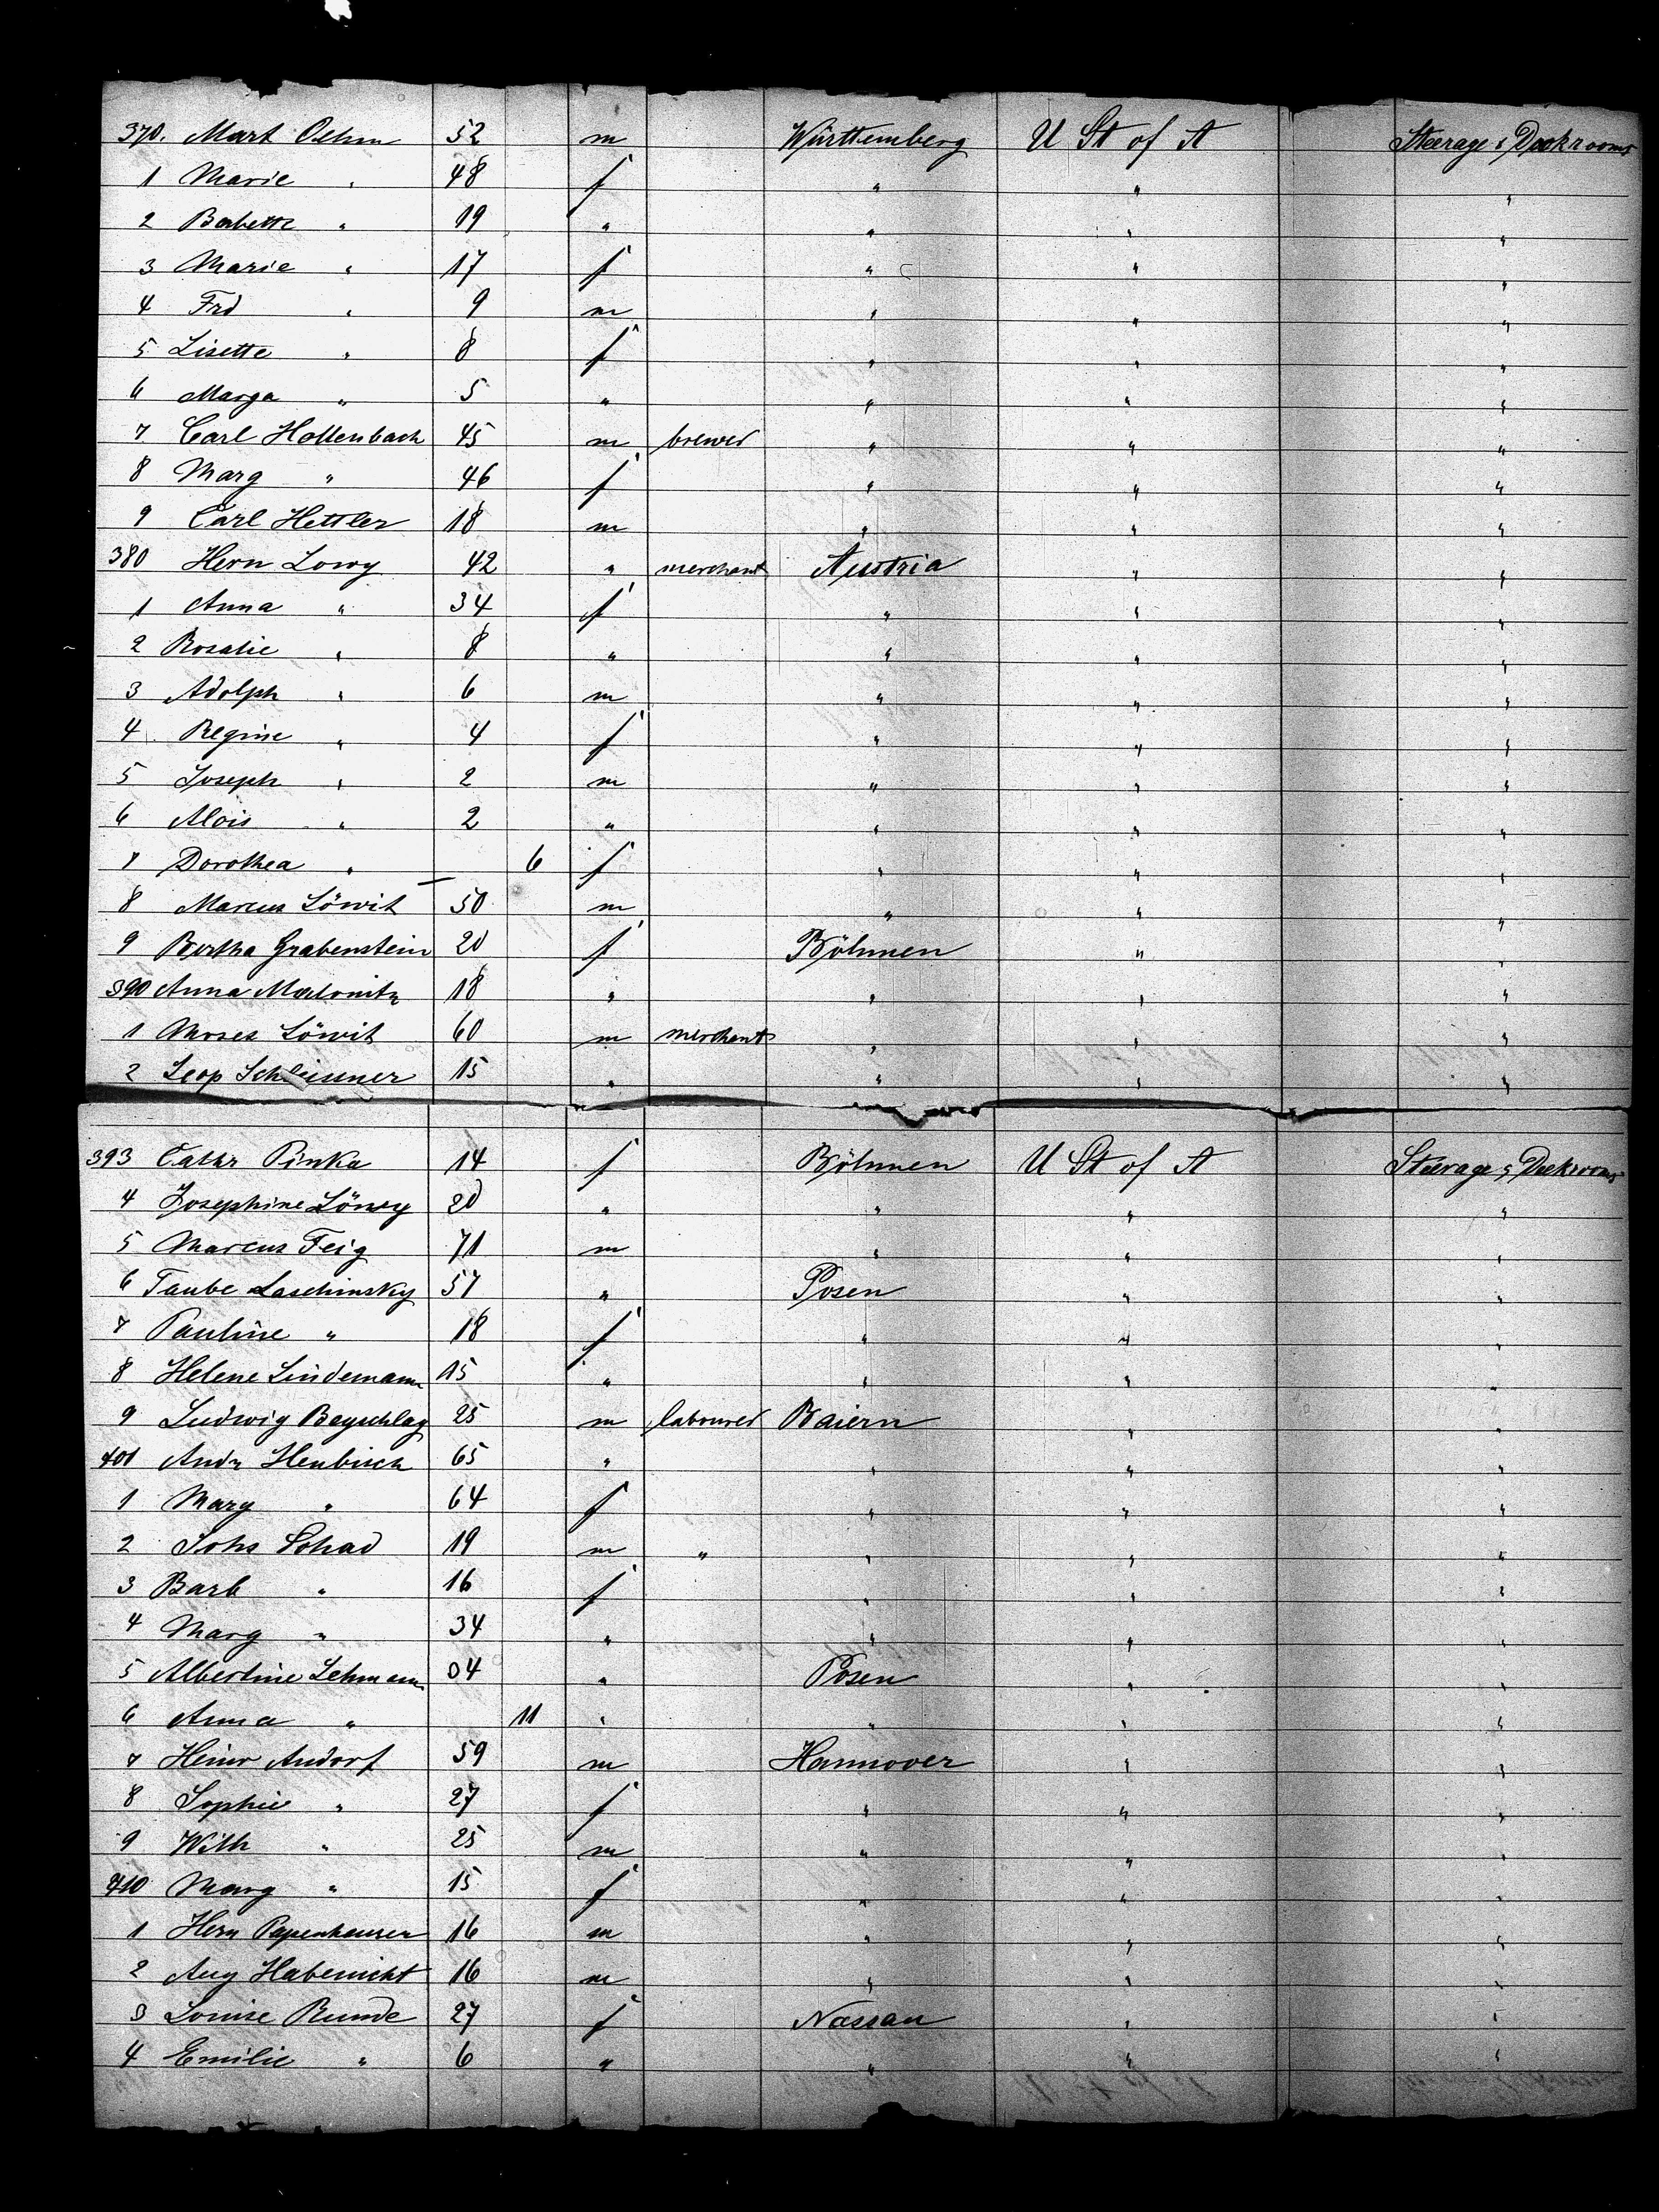 370. Mart Oehm 52 m Württemberg U St of A Steerage & Deckrooms
1 Marie " 48 f " " "
2 Babette " 19 " " " "
3 Marie " 17 f " " "
4 Frd " 9 m " " "
5 Lisette " 8 f " " "
6 Marga " 5 " " " "
7 Carl Hollenbach 45 m brewer " " "
8 Marg " 46 f " " "
9 Carl Hettler 18 m " " "
380 Hern Lowy 42 " merchant Austria " "
1 Anna " 34 f " " "
2 Rosalie " 8 " " " "
3 Adolph " 6 m " " "
4 Regine " 4 f " " "
5 Joseph " 2 m " " "
6 Alois " 2 " " " "
7 Dorothea " 6 f " " "
8 Marcus Löwit 50 m " " "
9 Bertha Grabenstein 20 f Böhmen " "
390 Anna 18 " " " "
1 Moses Löwit 60 m merchant " " "
2 Leop Schleissner 15 " " " "
393 Cathr Pinka 14 f Böhmen U St of A Steerage & Deckrooms
4 Josephine Löwy 20 " " " "
5 Marcus Feig 71 m " " "
6 Taube Laschinsky 57 " Posen " "
7 Pauline " 18 f " " "
8 Helene Lindemann 15 " " " "
9 Ludwig Beyschlag 25 m labourer Baiern " "
401 Andr Heubisch 65 " " " "
1 Marg " 64 f " " "
2 Johs Schad 19 m " " " "
3 Barb " 16 f " " "
4 Marg " 34 " " " "
5 Albertine Lehmann 34 " Posen " "
6 Anna " 11 " " " "
7 Heinr Andorf 59 m Hannover " "
8 Sophie " 27 f " " "
9 Wilh " 25 m " " "
410 Marg " 15 f " " "
1 Hern Papenhausen 16 m " " "
2 Aug Habenicht 16 m " " "
3 Louise Runde 27 f Nassau " "
4 Emilie " 6 " " " "